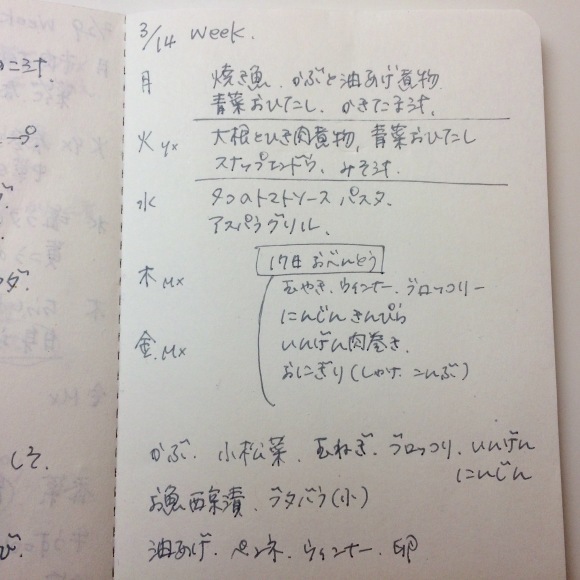 3/14 Week.
月 焼き魚、かぶと油あげ煮物
青菜おひたし、かきたま汁、
火 Yx 大根とひき肉煮物、青菜おひたし
スナップエンドウ、みそ汁.
水 タコのトマトソース パスタ
アスパラグリル、
木 Mx 17日 おべんとう
玉やき、ウィンナー、ブロッコリー
にんじん きんぴら
金 Mx いんげん肉巻き、
おにぎり(しゃけ、こんぶ)
かぶ、小松菜、玉ねぎ、ブロッコリ、いんげん
にんじん
お魚 西京漬、ブタバラ(小)
油あげ、ペンネ、ウィンナー、卵
しそ、